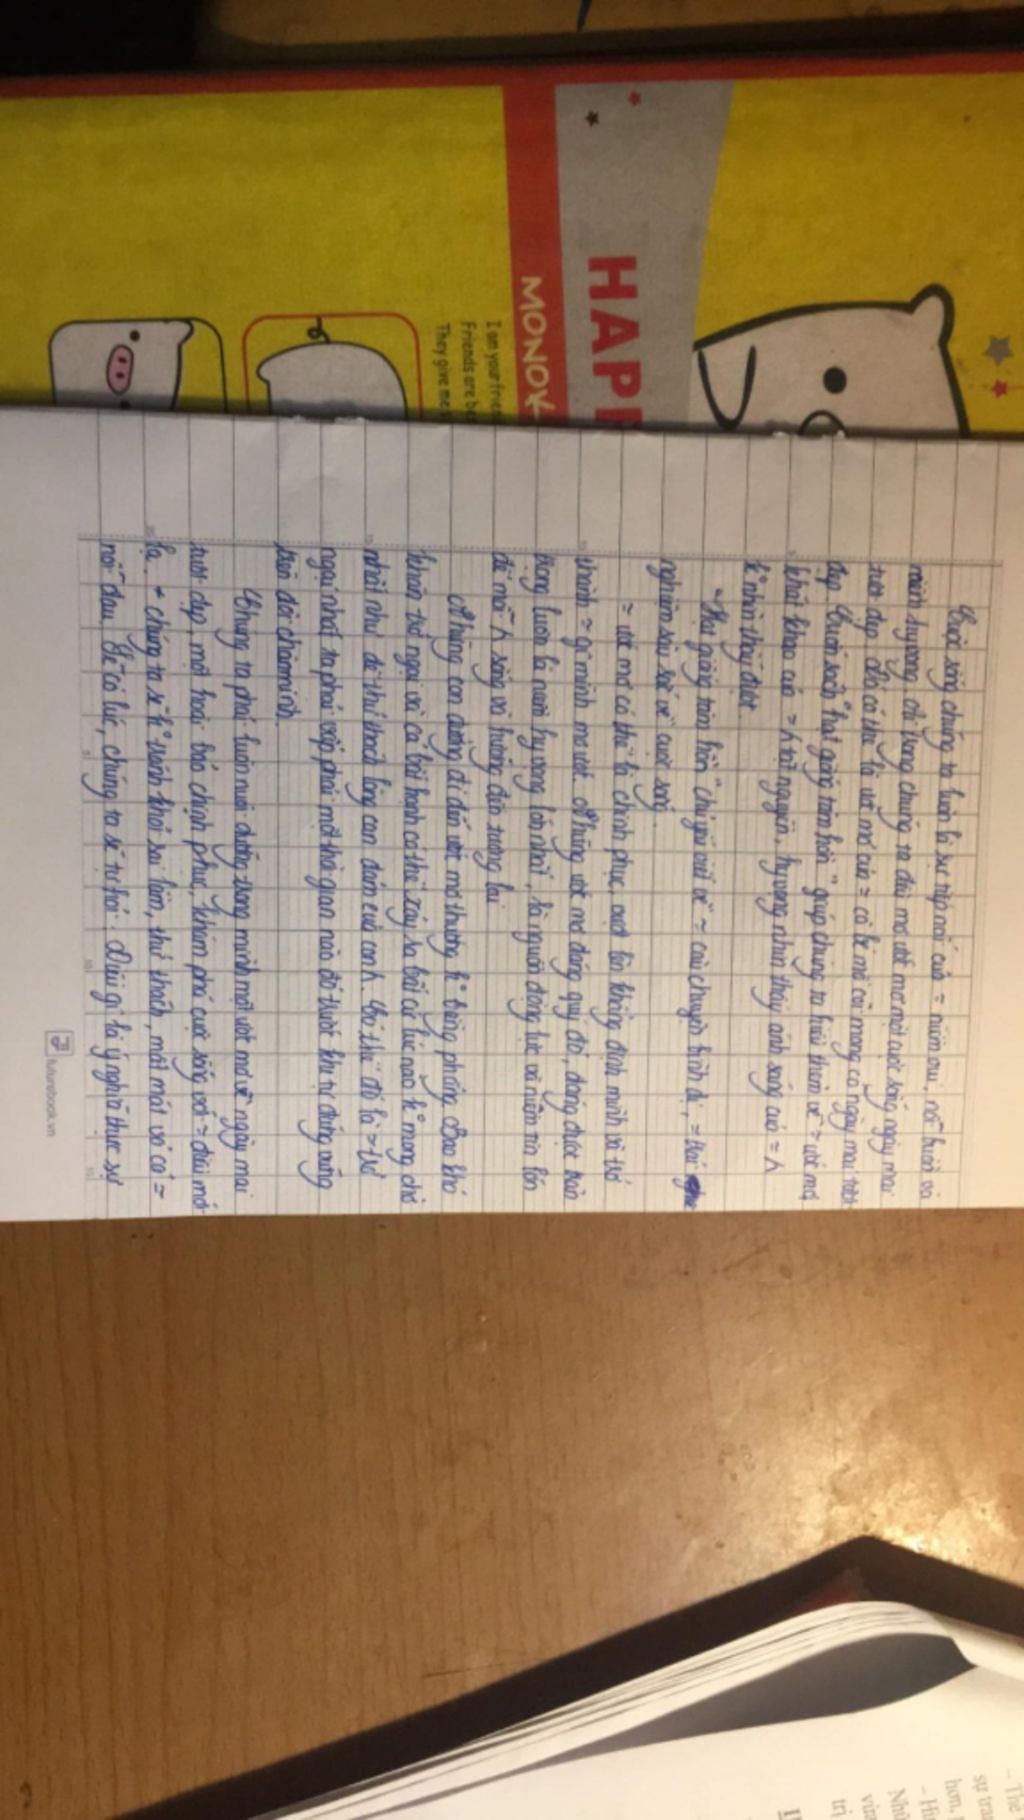 Cuộc sống chúng ta luôn là sự tiếp nối của = niềm vui, nỗi buồn và
niềm hy vọng, chi bằng chúng ta hãy mơ ước mơ một cuộc sống ngày mai
tươi đẹp. Đó có thể là ước mơ của = cô bé mồ côi mong có ngày mai tươi
đẹp. Cuốn sách "Hạt giống tâm hồn" giúp chúng ta hiểu thêm về = ước mơ,
khát khao của = ʎ trở nguyện, hy vọng nhìn thấy ánh sáng của = ʎ
k° nhìn thấy được.
"Hạt giống tâm hồn" chủ yếu viết về = câu chuyện bình dị, = trải
nghiệm sâu sắc về cuộc sống.
= ước mơ có thể là chinh phục, vượt lên khẳng định mình và trở
thành = gì mình mơ ước. Những ước mơ đáng quý đó, đang được trân
trọng luôn là nuôi hy vọng lớn nhất, là nguồn động lực và niềm tin lớn
để mỗi ʎ sống và hướng đến tương lai.
Những con đường đi đến ước mơ thường k° bằng phẳng. Bao khó
khăn, trở ngại và cả bất hạnh có thể xảy ra bất cứ lúc nào k° mong chờ
nhất như để thử thách lòng can đảm của con ʎ. Có thể đó là = trở
ngại nhất ta phải vấp phải một thời gian nào đó trước khi tự đứng vững
trên đôi chân mình.
Chúng ta phải luôn nuôi dưỡng trong mình một ước mơ về ngày mai
tươi đẹp, một hoài bão chinh phục, khám phá cuộc sống với = điều mới
lạ. + chúng ta sẽ k° tránh khỏi sai lầm, thử thách, mất mát và có =
nỗi đau. Để có lúc, chúng ta sẽ tự hỏi: Điều gì là ý nghĩa thực sự
futurebook.vn
HAPP
MONOK
I am your frie
Friends are be
They give me